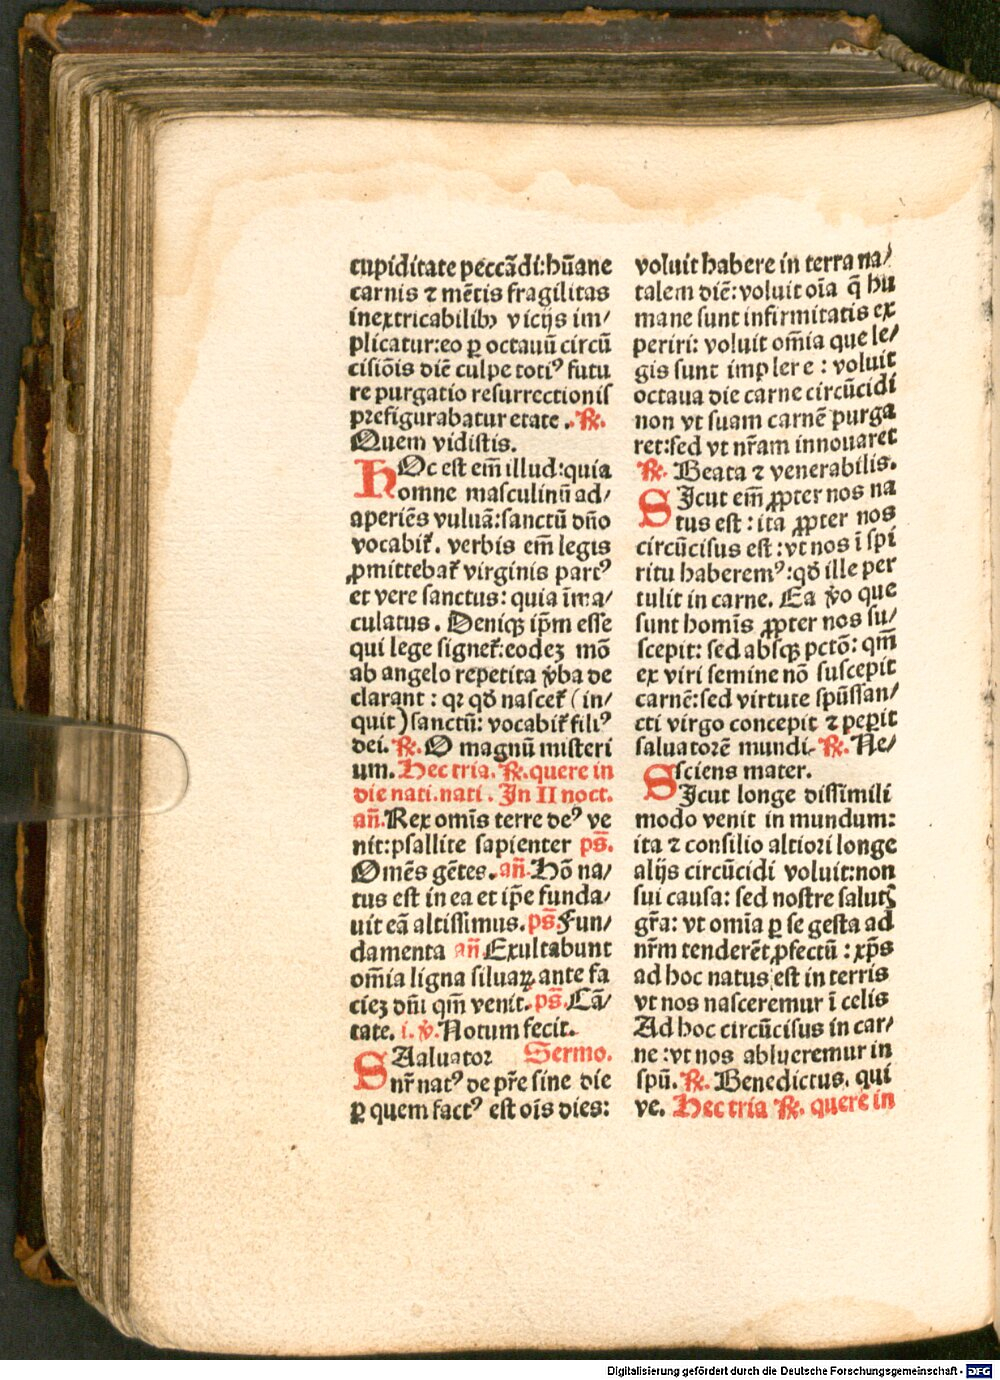 cupiditate peccãdi:hũane
carnis ⁊ mẽtis fragilitas
inextricabilibꝫ vicijs im/
plicatur:eo ꝑ octauũ circũ
cisiõis diẽ culpe totiꝰ futu
re purgatio resurrectionis
prefigurabatur etate. ℟.
Quem vidistis.
HOc est em̃ illud:quia
omne masculinũ ad/
aperiẽs vuluã:sanctũ dño
vocabit̃. verbis em̃ legis
ꝓmittebat̃ virginis partꝰ
et vere sanctus: quia ĩma/
culatus. Deniqꝫ ip̃m esse
qui lege signet̃:eodeꝫ mõ
ab angelo repetita v̓ba de
clarant: qꝛ qđ nascet̃ (in/
quit) sanctũ: vocabit̃ filiꝰ
dei. ℟. O magnũ misteri
um. Hec tria. ℟. quere in
die nati.nati. In II noct.
añ. Rex om̃is terre deꝰ ve
nit:psallite sapienter ps̃.
Om̃es gẽtes. añ. Hõ na/
tus est in ea et ip̃e funda/
uit eã altissimus. ps̃. Fun/
damenta añ Exultabunt
om̃ia ligna siluaꝝ ante fa
cieꝫ dñi qm̃ venit. ps̃. Cã/
tate. i. ℣. Notum fecit.
SAaluator Sermo.
nr̃ natꝰ de pr̃e sine die
ꝑ quem factꝰ est oĩs dies:
voluit habere in terra na/
talem diẽ: voluit oĩa q̃ hu
mane sunt infirmitatis ex
periri: voluit om̃ia que le/
gis sunt implere: voluit
octaua die carne circũcidi
non vt suam carnẽ purga
ret:sed vt nr̃am innouaret
℟. Beata ⁊ venerabilis.
SIcut em̃ ꝓpter nos na
tus est: ita ꝓpter nos
circũcisus est: vt nos ĩ spi
ritu haberemꝰ:qđ ille per
tulit in carne. Ea v̓o que
sunt homĩs ꝓpter nos su/
scepit: sed absqꝫ pctõ: qm̃
ex viri semine nõ suscepit
carnẽ:sed virtute spũssan/
cti virgo concepit ⁊ peꝑit
saluatorẽ mundi. ℟. Ne/
sciens mater.
SIcut longe dissimili
modo venit in mundum:
ita ⁊ consilio altiori longe
alijs circũcidi voluit:non
sui causa: sed nostre salutꝭ
gr̃a: vt om̃ia ꝑ se gesta ad
nr̃m tenderẽt ꝓfectũ: xp̃s
ad hoc natus est in terris
vt nos nasceremur ĩ celis
Ad hoc circũcisus in car/
ne: vt nos ablueremur in
spũ. ℟. Benedictus. qui
ve. Hec tria ℟. quere in
Digitalisierung gefördert durch die Deutsche Forschungsgemeinschaft - DFG